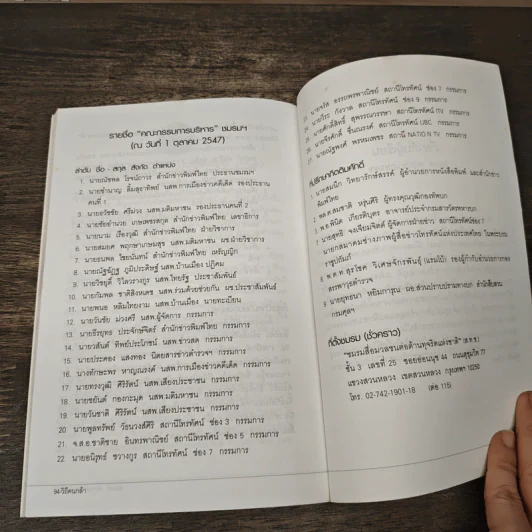 รายชื่อ "คณะกรรมการบริหาร" ชมรมฯ
(ณ วันที่ 1 ตุลาคม 2547)
ลำดับ ชื่อ - สกุล สังกัด ตำแหน่ง
1. นายณัชพล โรจน์ถาวร สำนักข่าวพิมพ์ไทย ประธานชมรมฯ
2. นายชำนาญ ลิ้มสุอาทิพย์ นสพ.การเมืองข่าวคดีเด็ด รองประธาน
คนที่ 1
3. นายธวัชชัย ศรีม่วง นสพ.มติมหาชน รองประธานคนที่ 2
4. นายชัยอำนวย เกษเพชรสกุล สำนักข่าวพิมพ์ไทย เลขาธิการ
5. นายนาม เรืองวุฒิ สำนักข่าวพิมพ์ไทย ฝ่ายวิชาการ
6. นายสมยศ พฤกษาเกษมสุข นสพ.มติมหาชน ผช.ฝ่ายวิชาการ
7. นายธนพล ไชยนันทน์ สำนักข่าวพิมพ์ไทย เหรัญญิก
8. นายณัฐณัฏฐ ภูมิประดิษฐ์ นสพ.บ้านเมือง ปฏิคม
9. นายวิชยุตี วิไลวรางกูร นสพ.ไทยรัฐ ประชาสัมพันธ์
10. นายกัมพล ชาติสิงหเดช นสพ.ร่วมด้วยช่วยกัน ผช.ประชาสัมพันธ์
11. นายพนอ หลิมไทยงาม นสพ.บ้านเมือง นายทะเบียน
12. นายวันชัย ม่วงศรี นสพ.ผู้จัดการ กรรมการ
13. นายธีรยุทธ ประจักษ์จิตร์ สำนักข่าวพิมพ์ไทย กรรมการ
14. นายวสันต์ ทิพย์ประโภชน์ นสพ.ข่าวสด กรรมการ
15. นายประคอง แสงทอง นิตยสารข่าวตำรวจฯ กรรมการ
16. นางทักษะพร หาญณรงค์ นสพ.การเมืองข่าวคดีเด็ด กรรมการ
17. นายทรงวุฒิ ศิริรัตน์ นสพ.เสียงประชาชน กรรมการ
18. นายชยันต์ กองกะมุด นสพ.มติมหาชน กรรมการ
19. นายวันชาติ ศิริรัตน์ นสพ.เสียงประชาชน กรรมการ
20. นายพูลทรัพย์ วัธนวงส์ศิริ สถานีโทรทัศน์ ช่อง 3 กรรมการ
21. จ.ส.อ.ชาติชาย อินทรพาณิชย์ สถานีโทรทัศน์ ช่อง 5 กรรมการ
22. นายอนิรุทธ์ ชวางกูร สถานีโทรทัศน์ ช่อง 7 กรรมการ
94-วิถีคนกล้า
นายจรัส อรรถพรพาณิชย์ สถานีโทรทัศน์ ช่อง 7 กรรมการ
นายวีระ กังวาล สถานีโทรทัศน์ ช่อง 9 กรรมการ
นายศักดิ์สิทธิ์ สุพรรณวรรษา สถานีโทรทัศน์ ITV กรรมการ
นายจิรศักดิ์ ชื่นณรงค์ สถานีโทรทัศน์ UBC กรรมการ
27. นายณัฐพงศ์ พรหมเพชร สถานี NATION TV กรรมการ
ที่ปรึกษากิตติมศักดิ์
1. นายสมนึก วิทยารักษ์สรรค์ ผู้อำนวยการหนังสือพิมพ์ และสำนักข่าว
พิมพ์ไทย
2. พล.ต.สมชาติ หสุนศิริ ผู้ทรงคุณวุฒิกองทัพบก
3. พ.อ.พินิต เกียรติบุตร อาจารย์ประจำกรมสารวัตรทหารบก
4. นายสุทธิ จงเจียมจิตต์ ผู้จัดการฝ่ายข่าว สถานีโทรทัศน์ช่อง 7
นายกสมาคมช่างภาพผู้สื่อข่าวโทรทัศน์แห่งประเทศไทย ในพระบรม
ราชูปถัมภ์
5. พ.ต.ท.สุรโชค วิเศษจักรพันธุ์ (แรมโบ้) รองผู้กำกับอำนวยการกอง
สรรพาวุธตำรวจ
6. นายยุทธนา หยิมการุณ ผอ.ส่วนปราบปรามทางบก สำนักสืบสวน
กรมศุลฯ
ที่ตั้งชมรม (ชั่วคราว)
"ชมรมสื่อมวลชนต่อต้านทุจริตแห่งชาติ" (ส.ท.ช)
ชั้น 3 เลขที่ 25 ซอยอ่อนนุช 44 ถนนสุขุมวิท 77
แขวงสวนหลวง เขตสวนหลวง กรุงเทพฯ 10250
โทร. 02-742-1901-18 (ต่อ 115)